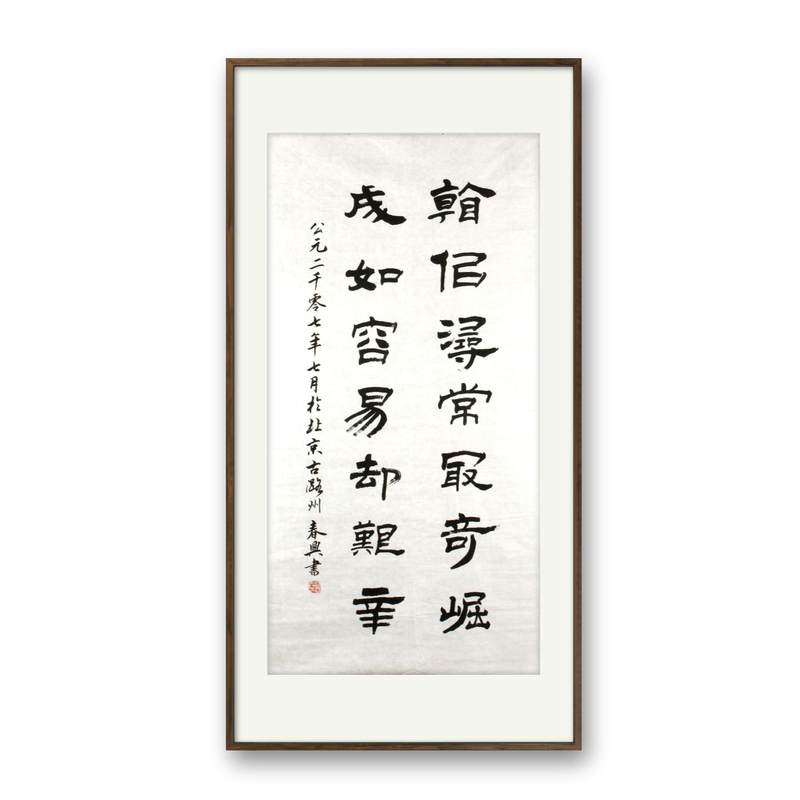 看佀潯常冣竒崛
成如容易却艱辛
公元二千零七年七月於北京古潞州 春興書